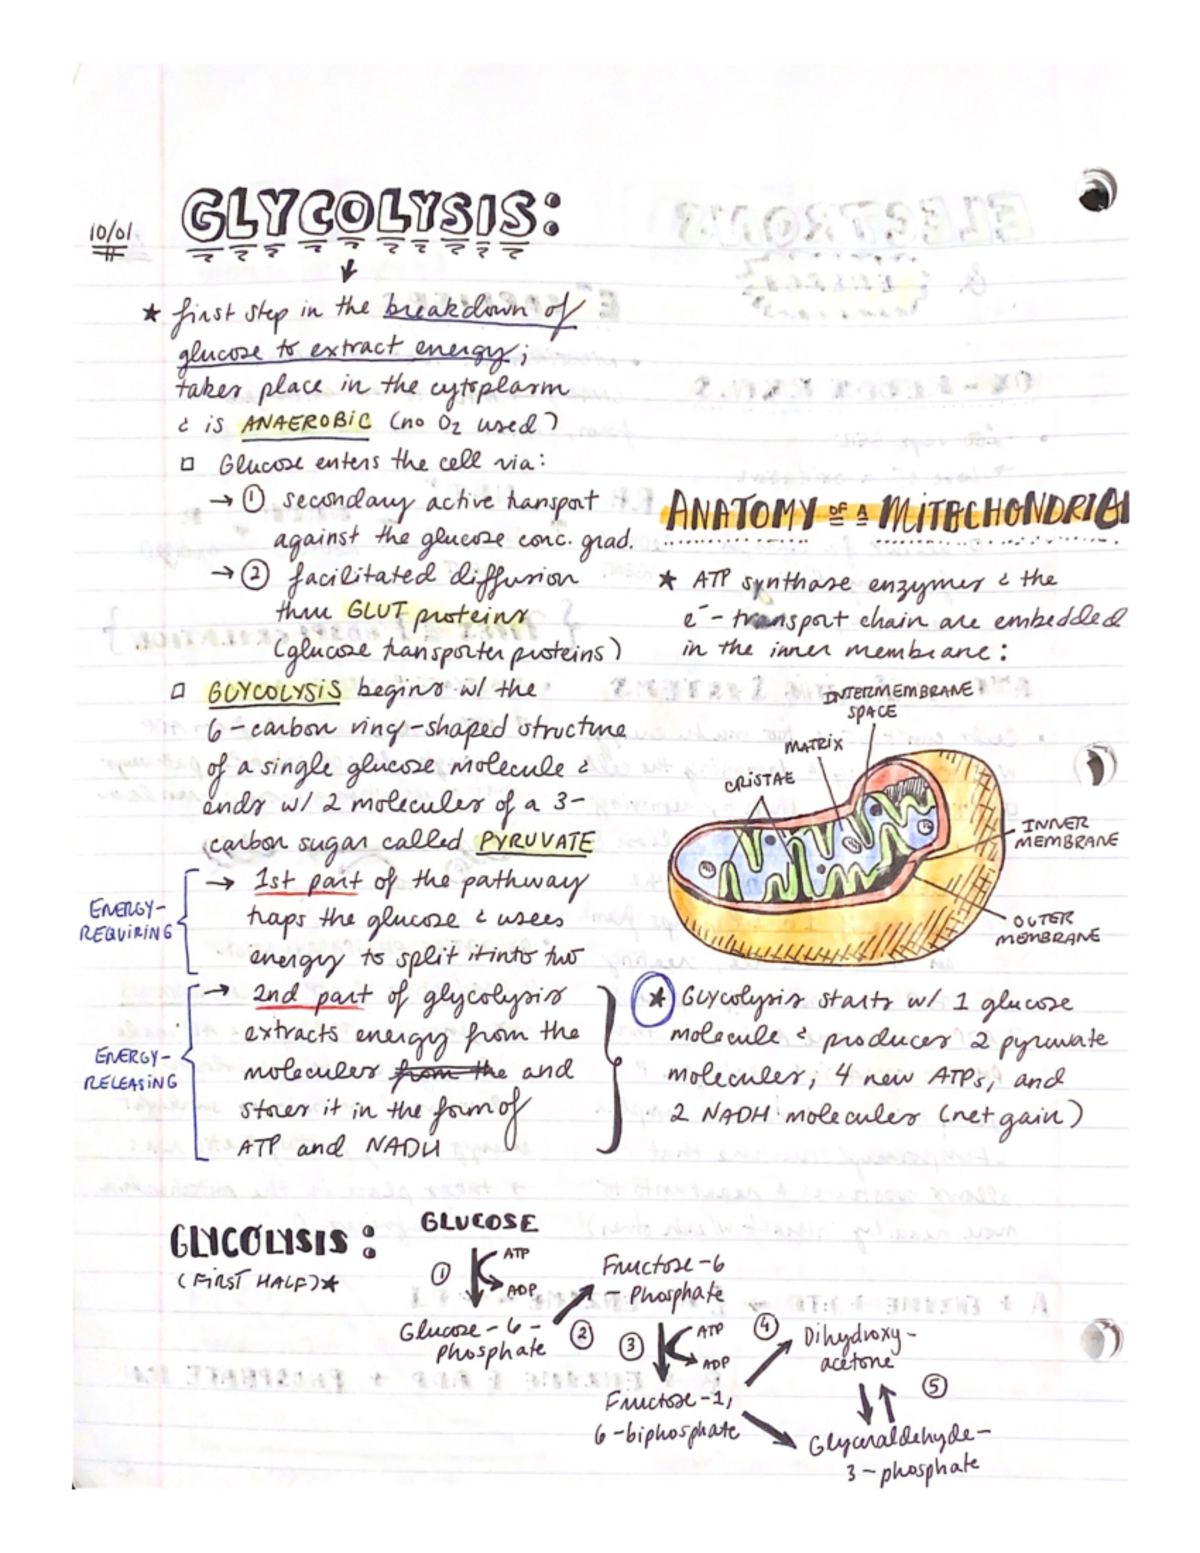 10/01
GLYCOLYSIS:
★ first step in the breakdown of
glucose to extract energy;
takes place in the cytoplasm
& is ANAEROBIC (no O₂ used)
□ Glucose enters the cell via:
→ ① secondary active transport
against the glucose conc. grad.
→ ② facilitated diffusion
thru GLUT proteins
(glucose transporter proteins)
□ GLYCOLYSIS begins w/ the
6-carbon ring-shaped structure
of a single glucose molecule &
ends w/ 2 molecules of a 3-
carbon sugar called PYRUVATE
ENERGY-
REQUIRING
→ 1st part of the pathway
traps the glucose & usees
energy to split it into two
ENERGY-
RELEASING
→ 2nd part of glycolysis
extracts energy from the
molecules from the and
stores it in the form of
ATP and NADH
ANATOMY OF A MITOCHONDRION
★ ATP synthase enzymes & the
e⁻-transport chain are embedded
in the inner membrane:
INTERMEMBRANE
SPACE
MATRIX
CRISTAE
INNER
MEMBRANE
OUTER
MEMBRANE
★ Glycolysis starts w/ 1 glucose
molecule & produces 2 pyruvate
molecules, 4 new ATPs, and
2 NADH molecules (net gain)
GLYCOLYSIS:
(FIRST HALF)★
GLUCOSE
① ATP
ADP
Glucose-6-
phosphate
②
Fructose-6
-Phosphate
③ ATP
ADP
Fructose-1,
6-biphosphate
④
Dihydroxy-
acetone
⑤
Glyceraldehyde-
3-phosphate